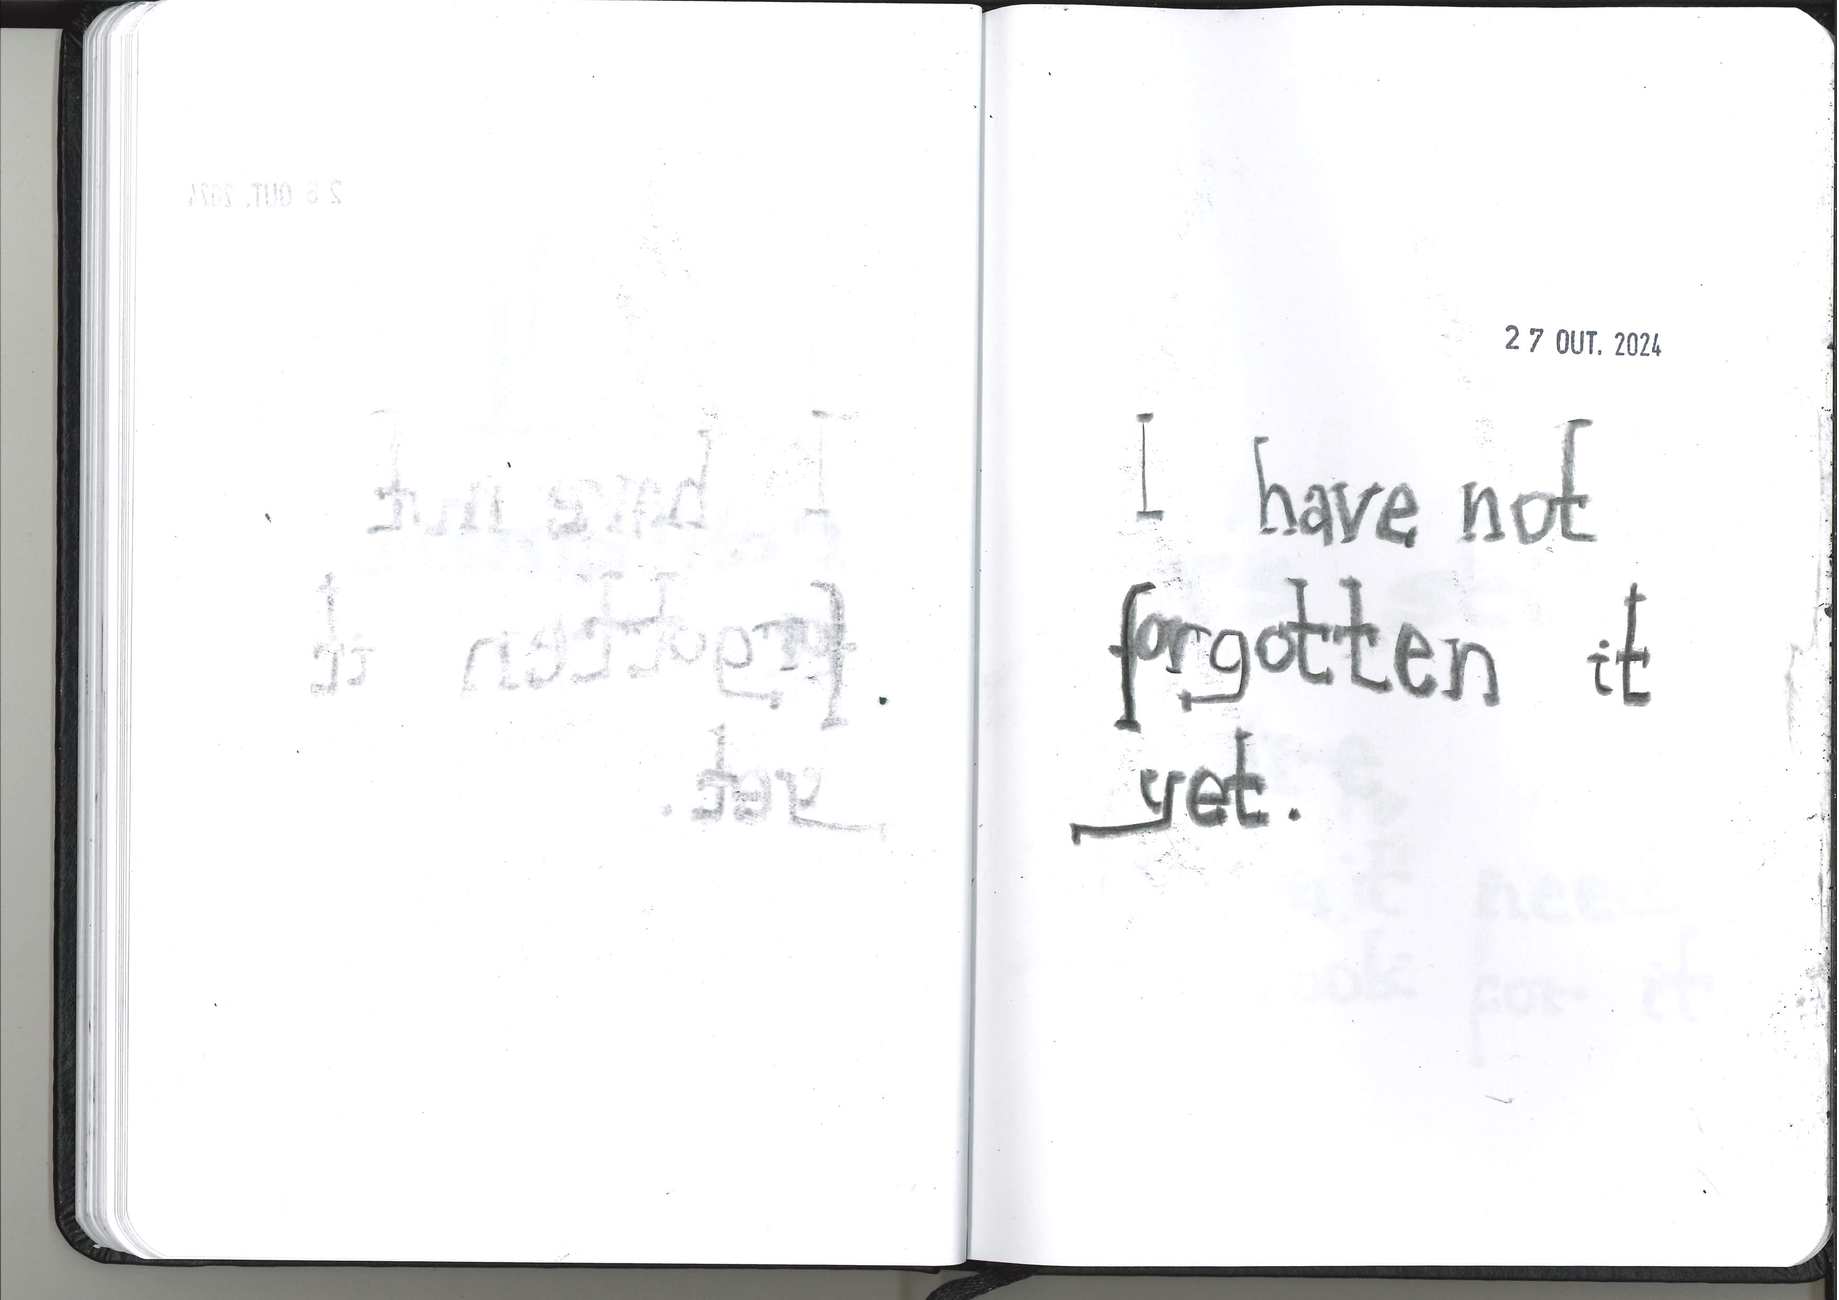 27 OUT. 2024
I have not
forgotten it
yet.